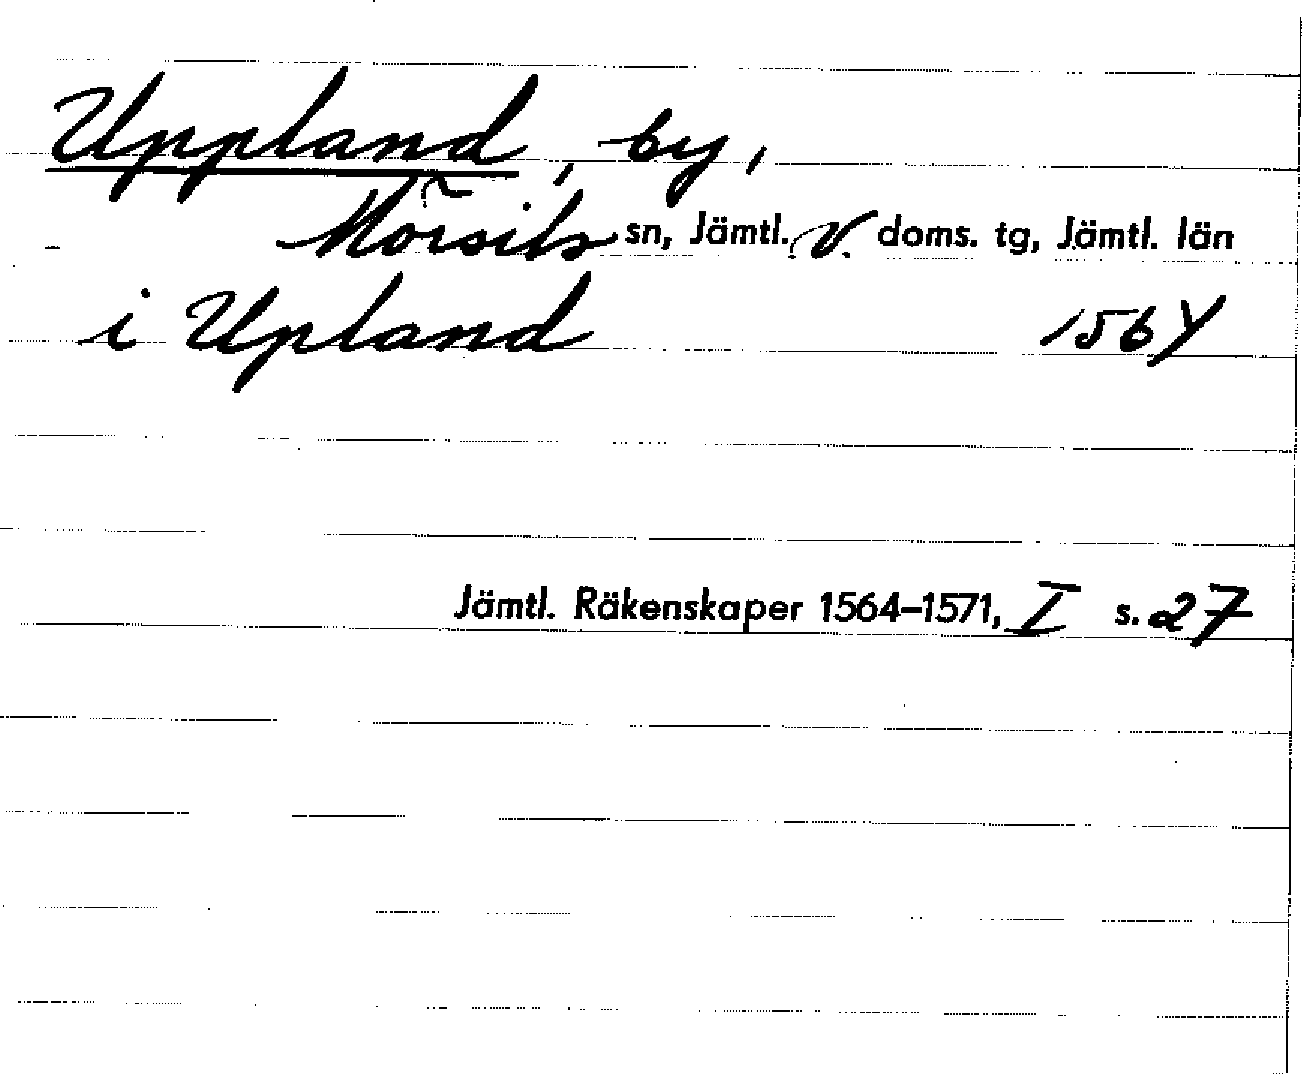 Uppland, by,
Mörsils sn, Jämtl. v. doms. tg, Jämtl. län
i Upland 1564
Jämtl. Räkenskaper 1564–1571, I s. 27